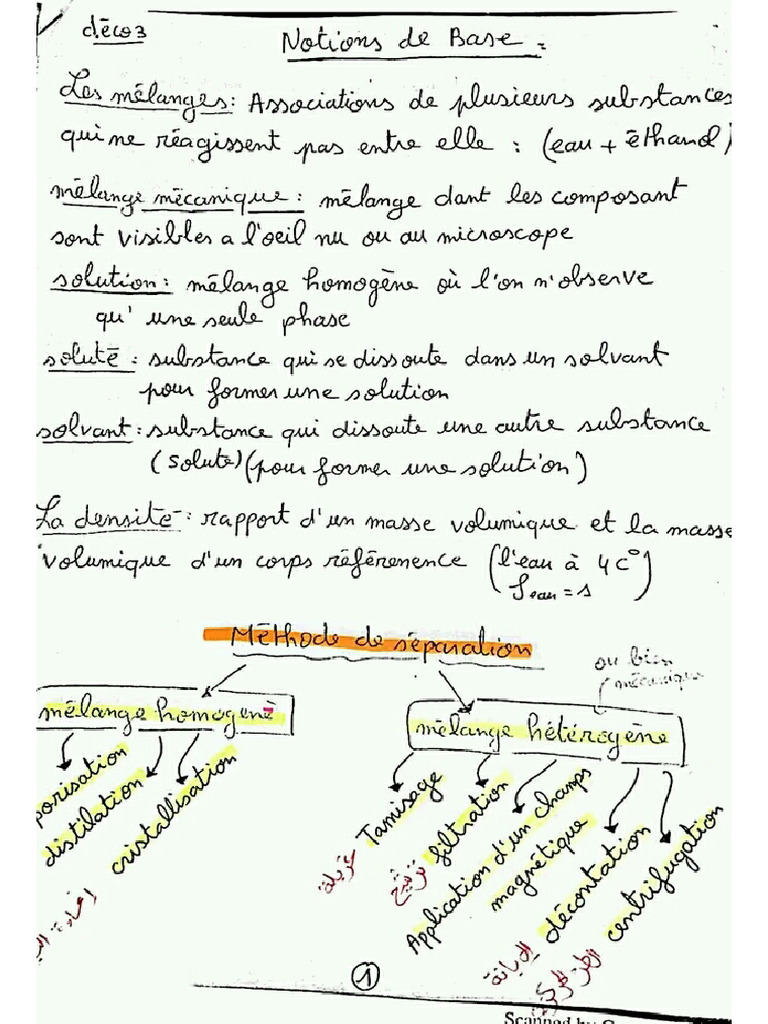 déco3
Notions de Base :
Les mélanges : Associations de plusieurs substances
qui ne réagissent pas entre elle : (eau + éthanol)
mélange mécanique : mélange dant les composant
sont visibles a l'oeil nu ou au microscope
solution : mélange homogène où l'on n'observe
qu' une seule phase
soluté : substance qui se dissoute dans un solvant
pour former une solution
solvant : substance qui dissoute une autre substance
(soluté) (pour former une solution)
La densité : rapport d'un masse volumique et la masse
volumique d'un corps référenence (l'eau à 4c°
ρeau = 1)
Méthode de séparation
ou bien
mécanique
mélange homogenè
mélange hétérogène
porisation
distilation
cristallisation
Tamisage
غربلة
filtration
ترشيح
Application d'un champs
magnétique
décontation
الإبانة
centrifugation
إعادة
1
Scanned by